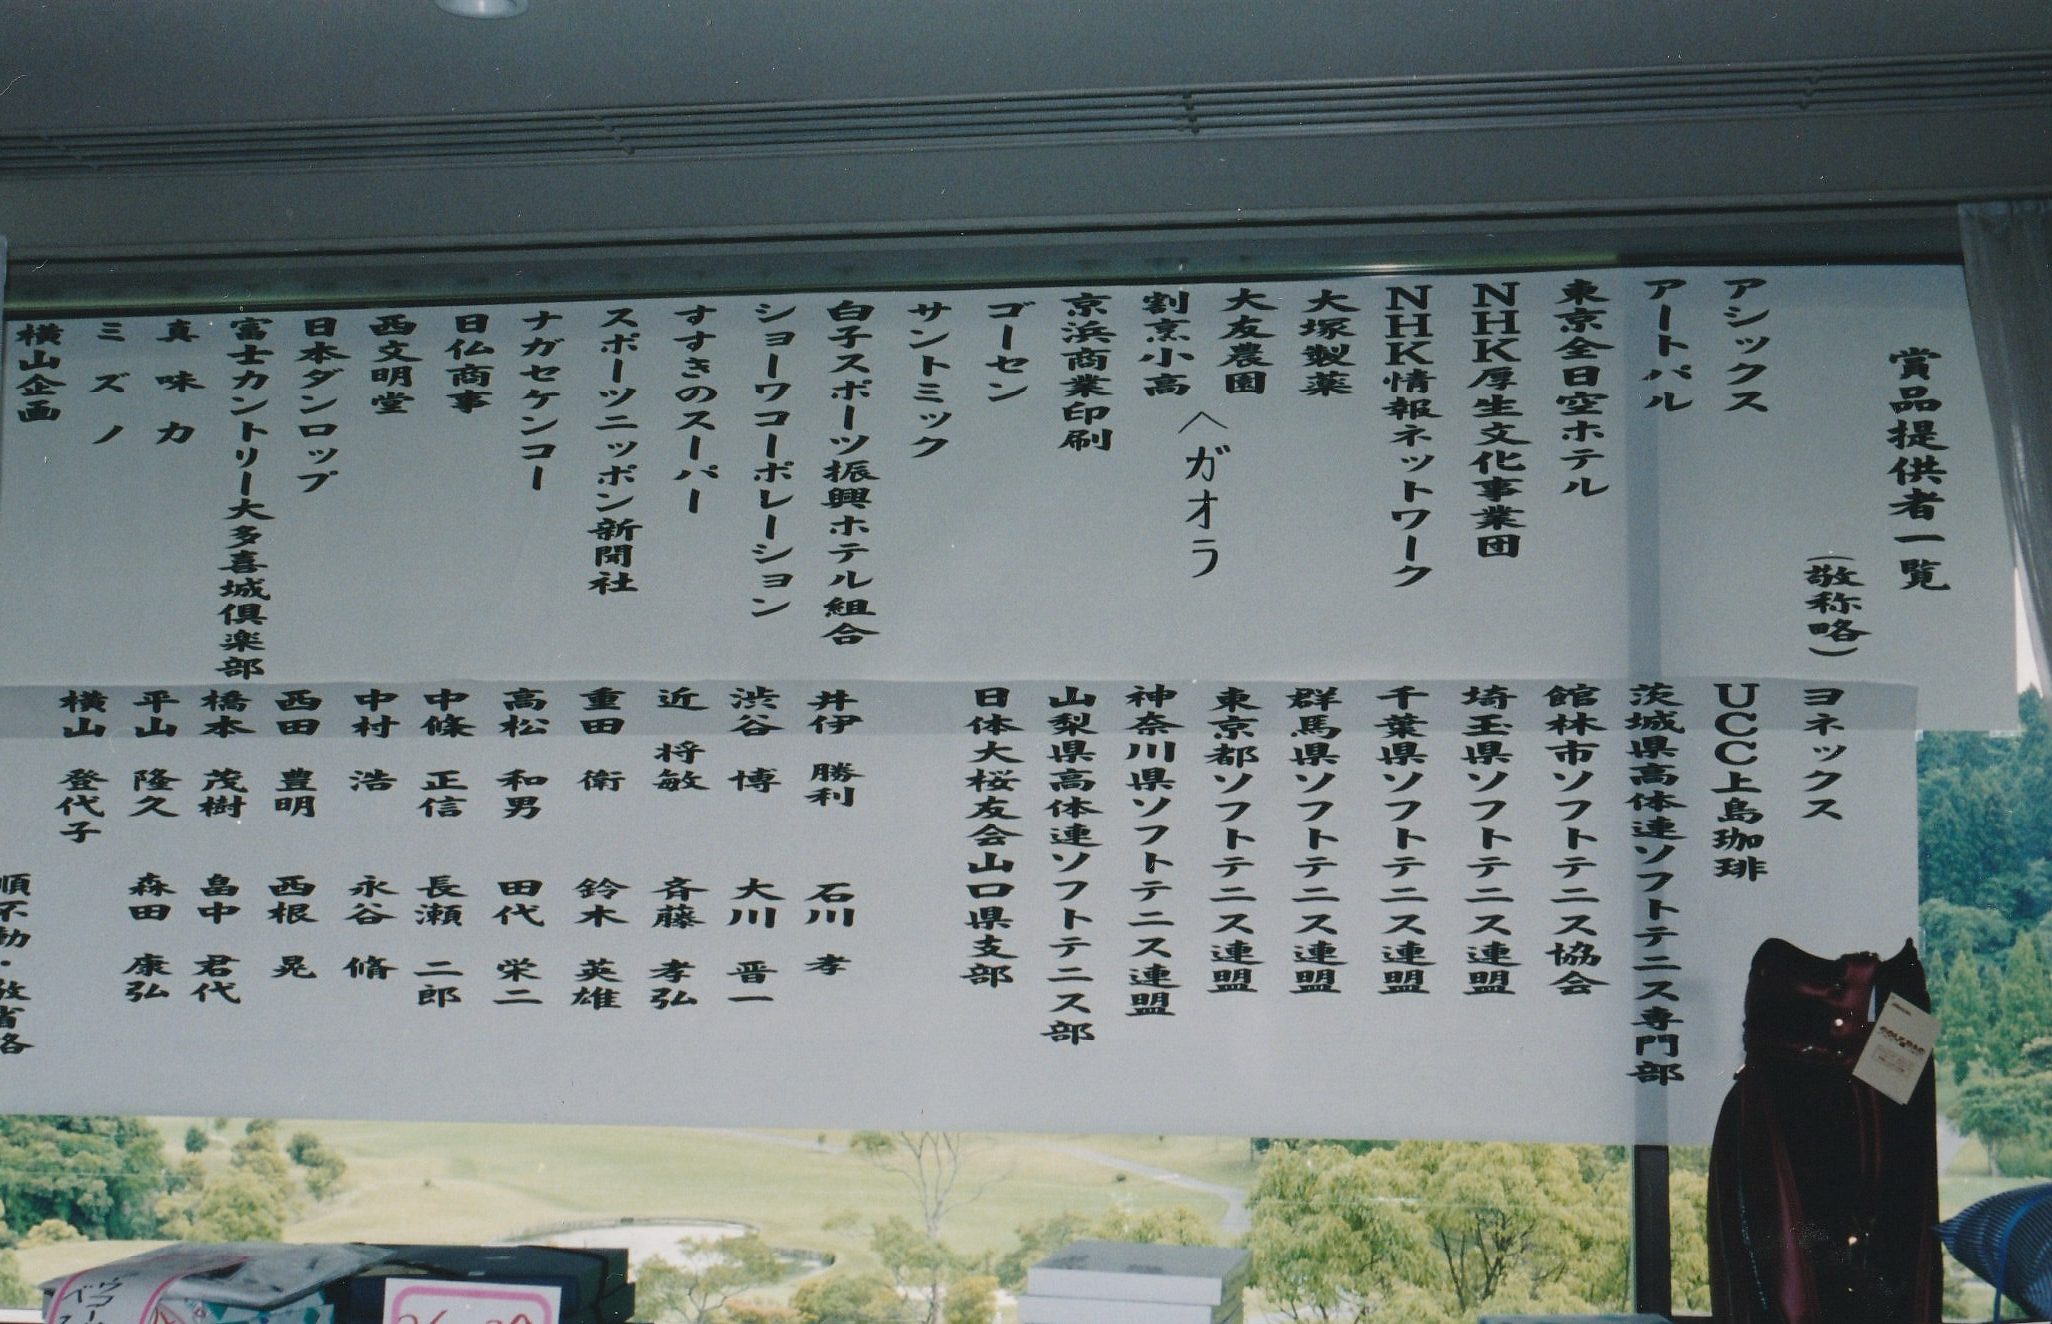 賞品提供者一覧
（敬称略）
アシックス
アートパル
東京全日空ホテル
NHK厚生文化事業団
NHK情報ネットワーク
大塚製薬
大友農園
＜ガオラ
割烹小高
京浜商業印刷
ゴーセン
サントミック
白子スポーツ振興ホテル組合
ショーワコーポレーション
すすきのスーパー
スポーツニッポン新聞社
ナガセケンコー
日仏商事
西文明堂
日本ダンロップ
富士カントリー大多喜城倶楽部
真味力
ミズノ
横山企画
ヨネックス
UCC上島珈琲
茨城県高体連ソフトテニス専門部
館林市ソフトテニス協会
埼玉県ソフトテニス連盟
千葉県ソフトテニス連盟
群馬県ソフトテニス連盟
東京都ソフトテニス連盟
神奈川県ソフトテニス連盟
山梨県高体連ソフトテニス部
日体大桜友会山口県支部
井伊 勝利 石川 孝
渋谷 博 大川 晋一
近 将敏 斉藤 孝弘
重田 衛 鈴木 英雄
高松 和男 田代 栄二
中條 正信 長瀬 二郎
中村 浩 永谷 脩
西田 豊明 西根 晃
橋本 茂樹 畠中 君代
平山 隆久 森田 康弘
横山 登代子
GOLF BAG